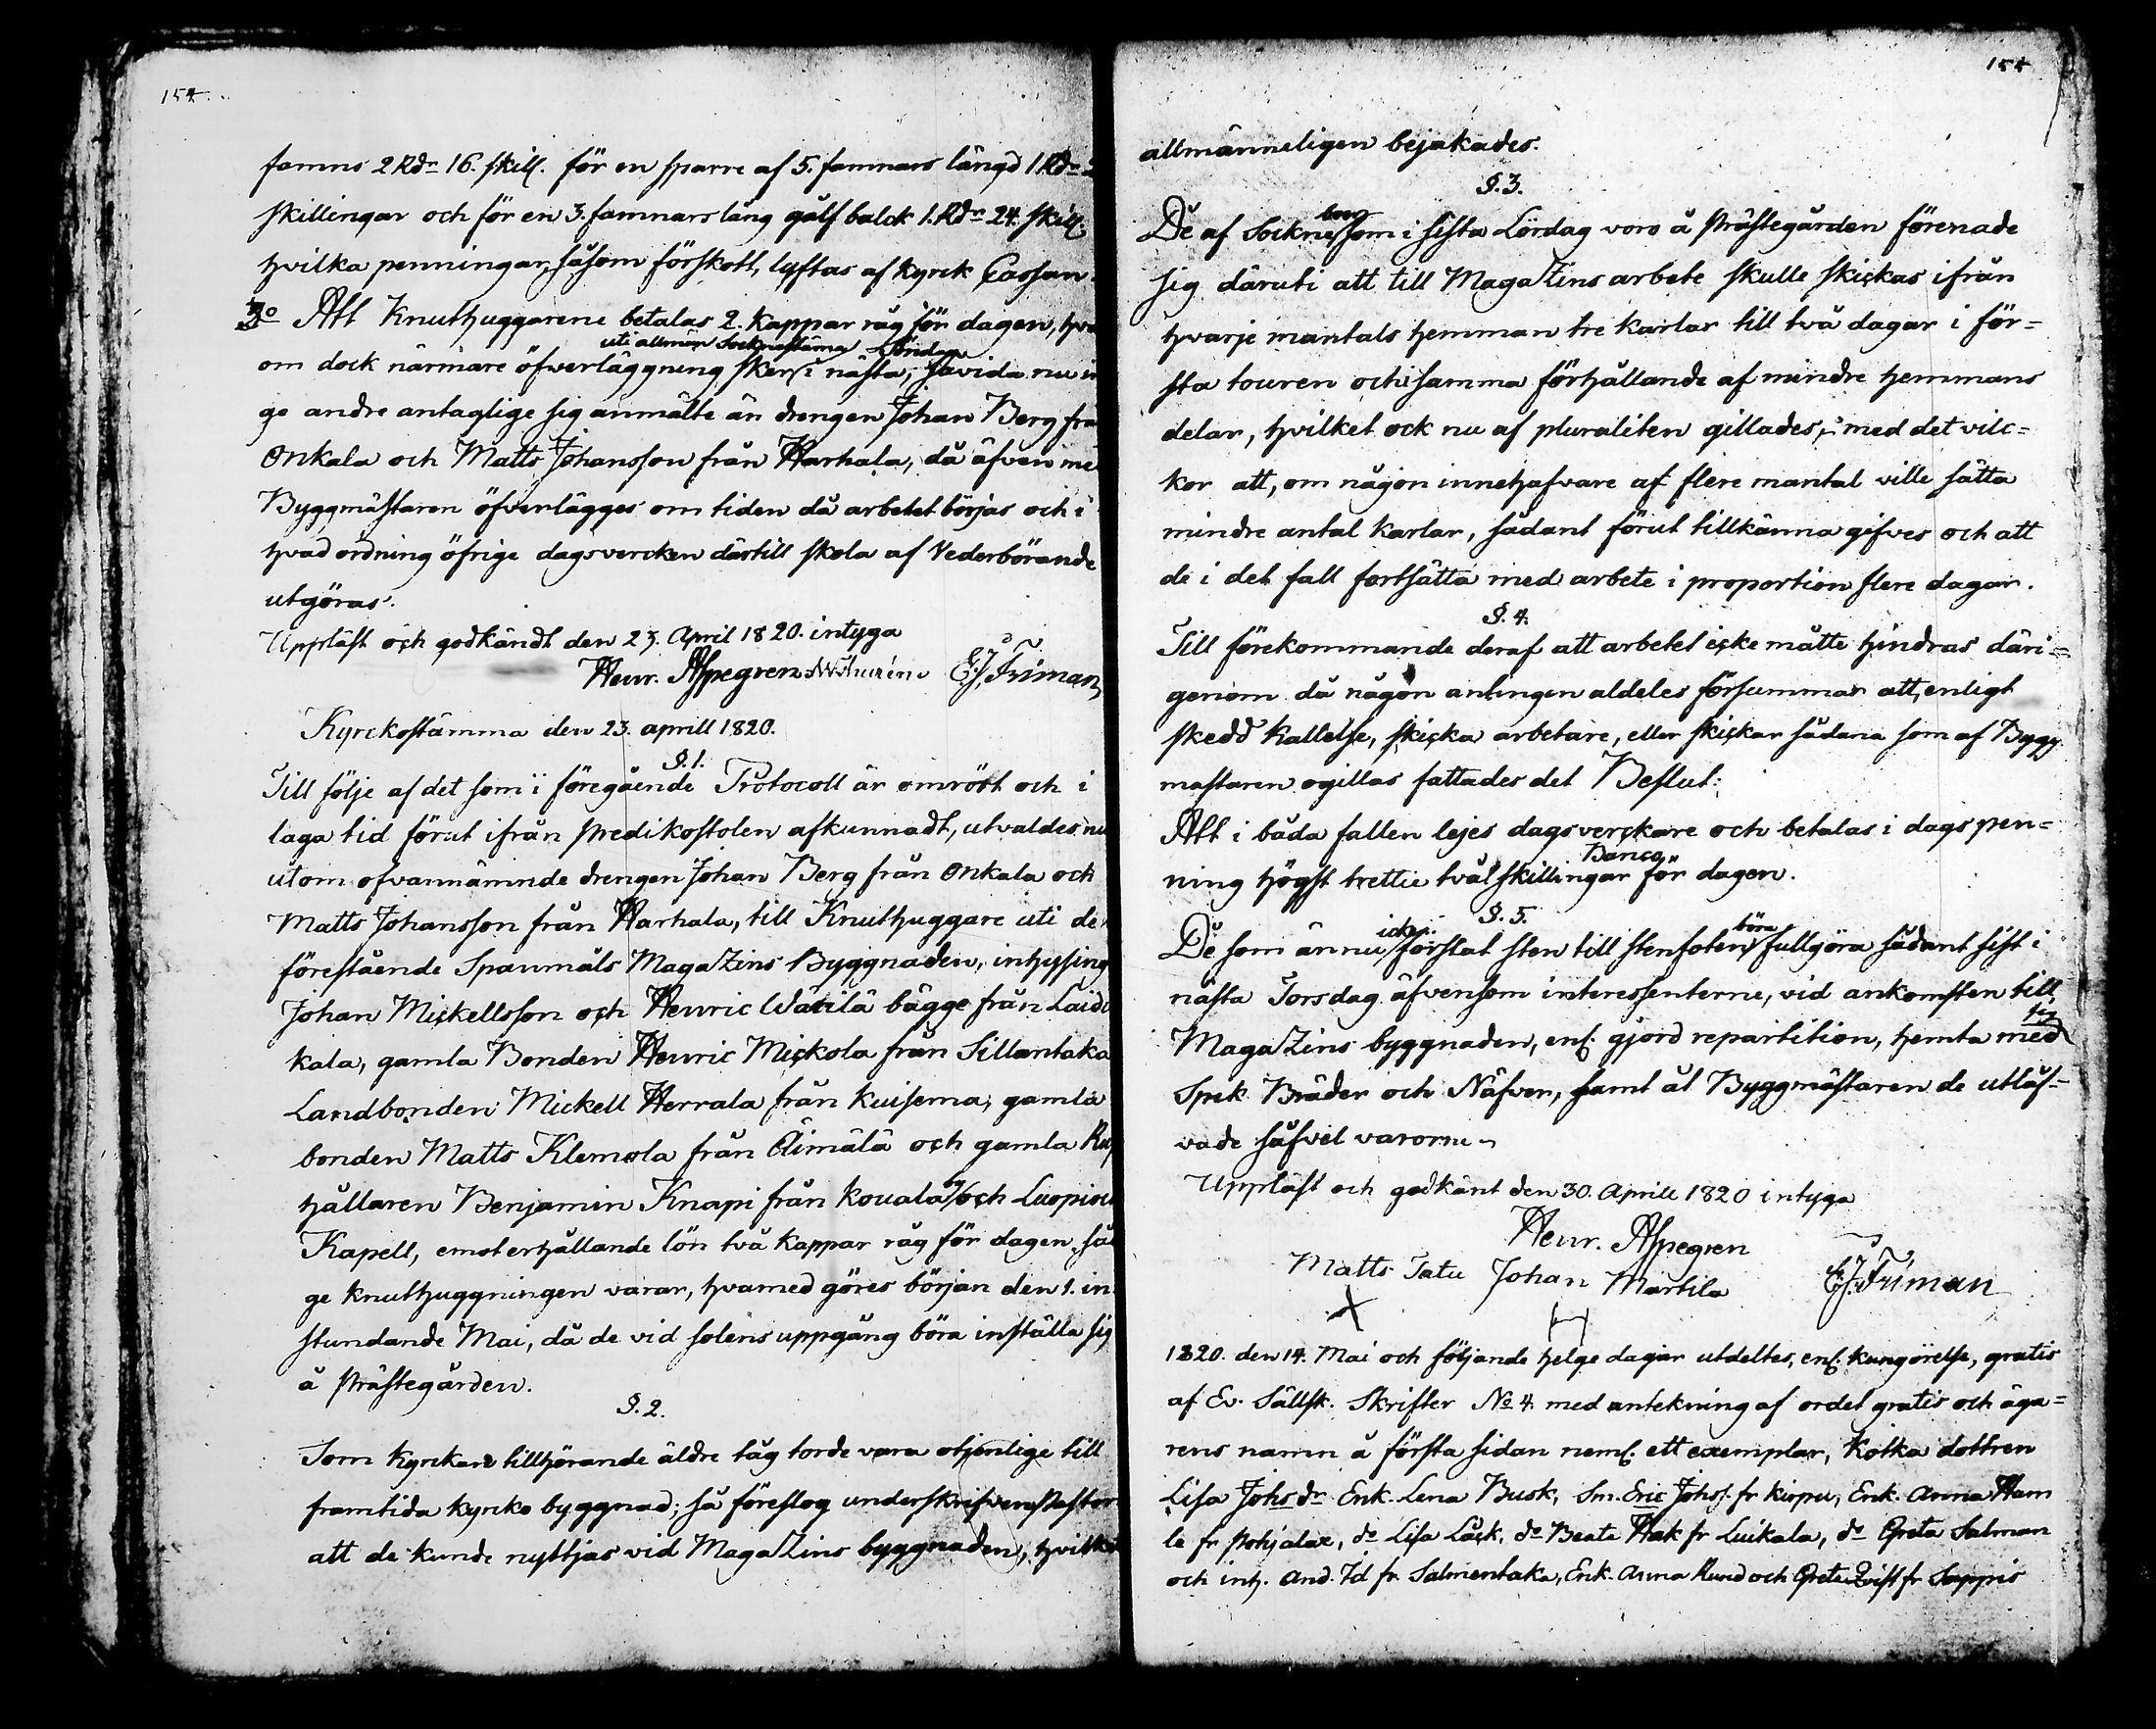 154.
famns 2 Rdr 16. skill. för en sparre af 5. famnars längd 1 Rdr
skillingar och för en 3. famnars lång gålfbalck 1. Rdr 24. skill.
hvilka penningar, såsom förskott, lyftas af Kyrck Cassan.
3o Att Knuthuggarene betalas 2. Kappar råg för dagen, hvar
uti allmän Socknestämma Söndag
om dock närmare öfwerläggning sker i nästa; såvida nu in
ge andre antaglige sig anmälte än drengen Johan Berg från
Onkala och Matts Johansson från Harhala, då äfven med
Byggmästaren öfverlägges om tiden då arbetet börjas och i
hvad ordning öfrige dagsvercken därtill skola af Vederbörande
utgöras.
Uppläst och godkändt den 23. April 1820. intyga
Henr. Aspegren E.J. Friman
Kyrckostämma den 23. aprill 1820.
§. 1.
Till följe af det som i föregående Protocoll är omrört och i
laga tid förut ifrån Predikostolen afkunnadt, utvaldes nu
utom ofvannämnde drengen Johan Berg från Onkala och
Matts Johansson från Harhala, till Knuthuggare uti den
förestående Spanmåls MagaZins Byggnaden, inhysing
Johan Mickellsson och Henric Wätilä bägge från Laidi
kala, gamla Bonden Henric Mickola från Sillantaka
Landbonden Mickell Herrala från Kuisema, gamla
bonden Matts Klemola från Äimälä och gamla Rus
hållaren Benjamin Knapi från Kouala by och Luopiois
Kapell, emot erhållande lön två kappar råg för dagen, så
ge knuthuggningen varar, hvarmed göres början den 1. in
stundande Mai, då de vid solens uppgång böra inställa sig
å Prästegården.
§. 2.
Som Kyrckans tillhörande äldre tåg torde vara otjenlige till
framtida kyrko byggnad; så föreslog underskrifven Pastor
att de kunde nyttjas vid MagaZins byggnaden, hvilket
154
allmänneligen bejakades.
§. 3.
boer
De af Sockne som i sista Lördag voro å Prästegården förenade
sig däruti att till MagaZins arbete skulle skickas ifrån
hvarje mantals hemman tre karlar till två dagar i för=
sta touren och i samma förhållande af mindre hemmans
delar, hvilket ock nu af pluraliten gillades, med det vilc=
kor att, om någon innehafvare af flere mantal ville sätta
mindre antal karlar, sådant förut tillkänna gifves och att
de i det fall fortsätta med arbete i proportion flere dagar.
§. 4.
Till förekommande deraf att arbetet icke måtte hindras däri=
genom då någon antingen aldeles försummar att, enligt
skedd kallelse, skicka arbetare, eller skickar sådana som af Bygg
mästaren ogillas fattades det Beslut:
Att i båda fallen lejes dagsverckare och betalas i dagspen=
Banco
ning högst trettie två skillingar för dagen.
§. 5.
icke böra
De som ännu förslat sten till stenfoten fullgöra sådant sist i
nästa Torsdag äfvensom interessenterne, vid ankomsten till
sig
MagaZins byggnaden, enl. gjord repartition, hemta med
Spik Bräder och Näfver, samt åt Byggmästaren de utläf=
vade såfvel varorne
Uppläst och godkänt den 30. Aprill 1820 intyga
Henr. Aspegren
Matts Tatu Johan Martila E.J. Friman
1820. den 14. Mai och följande helge dagar utdeltes, enl. kungörelse, gratis
af Ev. Sällsk. Skrifter No 4 med antekning af ordet gratis och äga=
rens namn å första sidan neml. ett exemplar, Kotka dottren
Lisa Johsdr Enk. Lena Busk, Sm. Eric Johss. fr Kirpu, Enk. Anna Ham
le fr Pohjalax, do Lisa Läck, do Beata Hak fr Luikala, do Greta Salman
och inh. And. Id fr. Salmentaka, Enk. Anna Rund och Greta Zvist fr Sappis